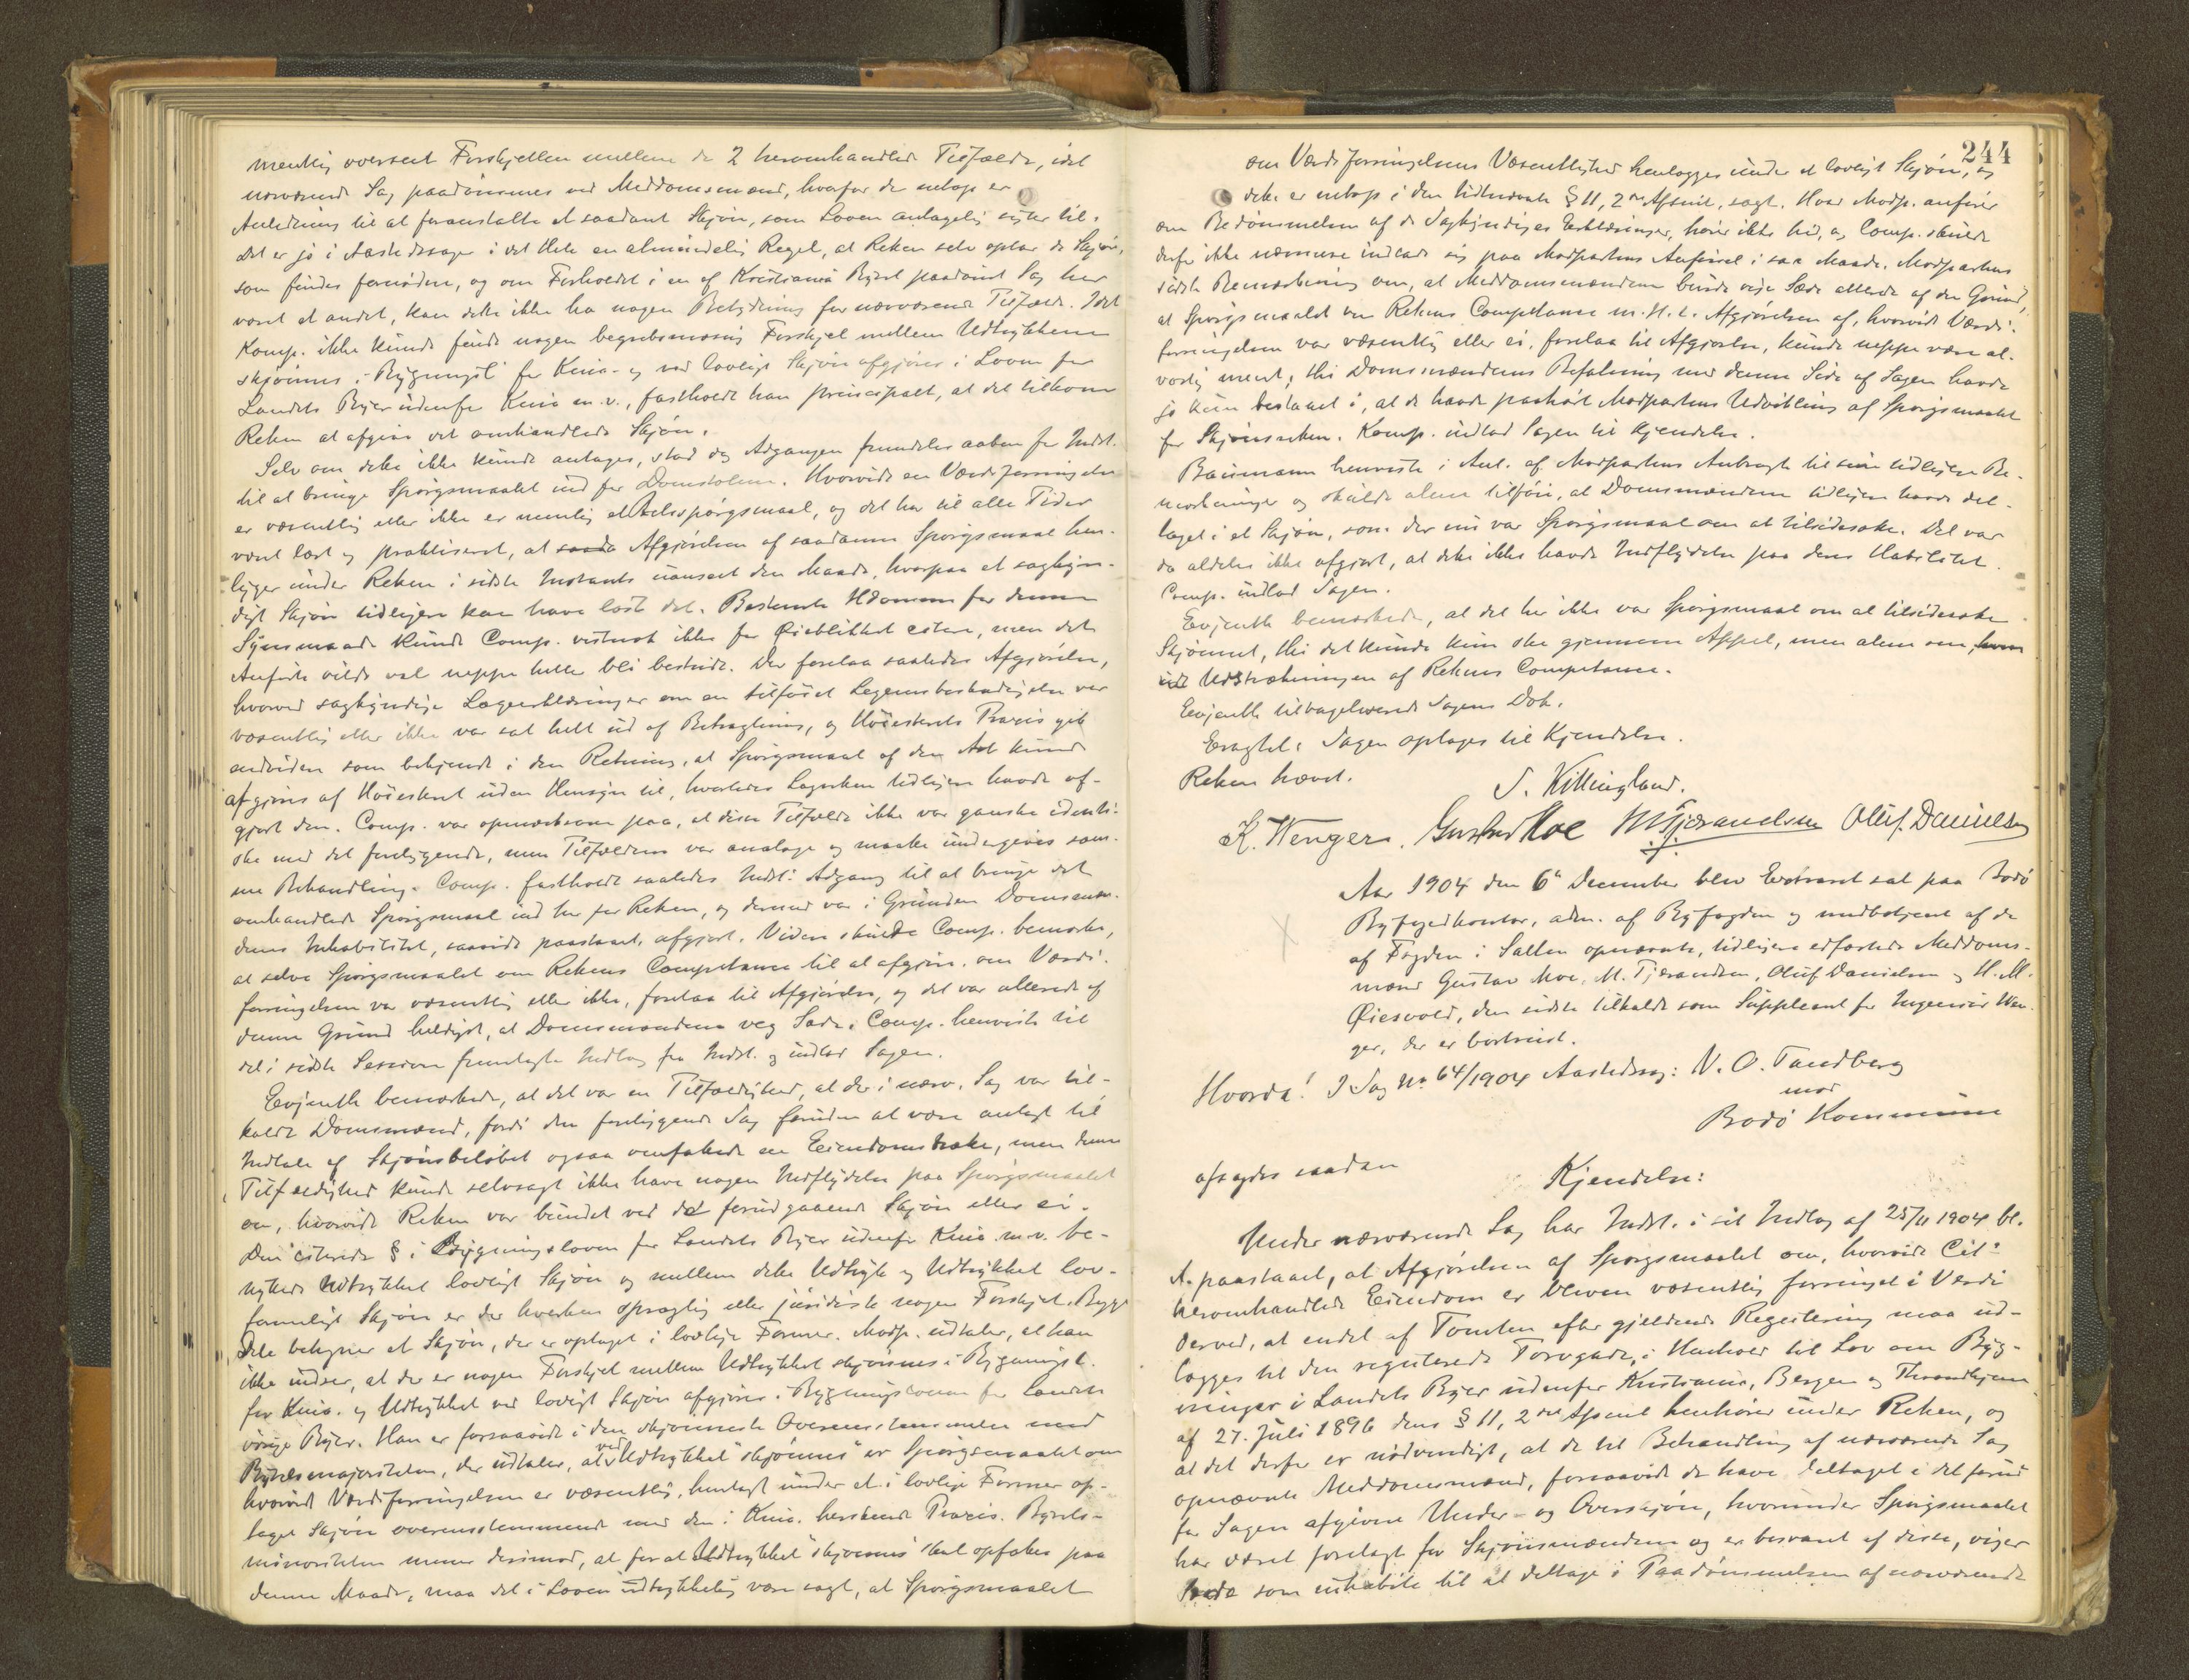 mentlig overseet Forskjellen mellem de 2 heromhandlede Tilfælde, idet
nærværende Sag paadømmes med Meddomsmænd, hvorfor der netop er
Anledning til at foranstalte et saadant Skjøn, som Loven antagelig sigter til.
Det er jo i Aastedssager i det Hele en almindelig Regel, at Retten selv optar de Skjøn,
som findes fornødne, og om Forholdet i en af Kristiania Byret paadømt Sag har
været et andet, kan dette ikke ha nogen Betydning for nærværende Tilfælde. Idet
Komp. ikke kunde finde nogen begrebsmæssig Forskjel mellem Udtrykkene
skjønnes i Bygningsl. for Kria. og ved lovligt Skjøn afgjøres i Loven for
Landets Byer udenfor Kria m.v., fastholdt han principalt, at det tilkom
Retten at afgive det omhandlede Skjøn.
Selv om dette ikke kunde antages, stod dog Adgangen fremdeles aaben for Indst.
til at bringe Spørgsmaalet ind for Domstolene. Hvorvidt en Værdiforringelse
er væsentlig eller ikke er nemlig et Retsspørgsmaal, og det har til alle Tider
været lært og praktiseret, at saada Afgjørelsen af saadanne Spørgsmaal hen-
ligger under Retten i sidste Instants uanseet den Maade, hvorpaa et sagkyn-
digt Skjøn tidligere kan have løst det. Bestemte Hdomme for denne
Synsmaade kunde Comp. vistnok ikke for Øieblikket citere, men det
Anførte vilde vel neppe heller bli bestridt. Der forelaa saaledes Afgjørelser,
hvorved sagkyndige Lægeerklæringer om en tilføiet Legemsbeskadigelse var
væsentlig eller ikke var sat helt ud af Betragtning, og Høiesterets Praxis gik
endvidere som bekjendt i den Retning, at Spørgsmaal af den Art kunde
afgjøres af Høiesteret uden Hensyn til, hvorledes Lagretten tidligere havde af-
gjort den. Comp. var opmærksom paa, at disse Tilfælde ikke var ganske identi-
ske med det foreliggende, men Tilfældene var analoge og maatte undergives sam-
me Behandling. Comp. fastholdt saaledes Indst.s Adgang til at bringe det
omhandlede Spørgsmaal ind her for Retten, og dermed var i Grunden Domsmæn-
denes Inhabilitet, saavidt paastaaet, afgjort. Videre skulde Comp. bemærke,
at selve Spørgsmaalet om Rettens Competance til at afgjøre, om Værdi-
forringelsen var væsentlig eller ikke, forelaa til Afgjørelse, og det var allerede af
denne Grund heldigst, at Domsmændene veg Sæde. Comp. henviste til
det i sidste Session fremlagte Indlæg fra Indst. og indlod Sagen.
Evjenth bemærkede, at det var en Tilfældighed, at der i nærv. Sag var til-
kaldt Domsmænd, fordi den foreliggende Sag foruden at være anlagt til
Indtale af Skjønsbeløbet ogsaa omfattede en Eiendomstrætte, men denne
Tilfældighed kunde selvsagt ikke have nogen Indflydelse paa Spørgsmaalet
om, hvorvidt Retten var bundet ved det forudgaaende Skjøn eller ei.
Den citerede § i Bygningsloven for Landets Byer udenfor Kria m.v. be-
nyttede Udtrykket lovligt Skjøn og mellem dette Udtryk og Udtrykket lov-
formeligt Skjøn er der hverken sproglig eller juridisk nogen Forskjel. Begge
Dele betegner et Skjøn, der er optaget i lovlige Former. Modp. udtaler, at han
ikke indser, at der er nogen Forskjel mellem Udtrykket skjønnes i Bygningsl.
for Kria. og Udtrykket ved lovligt Skjøn afgjøres i Bygningsloven for Landets
øvrige Byer. Han er forsaavidt i den skjønneste Overensstemmelse med
Byretsmajoriteten, der udtaler, at ved Udtrykket "skjønnes" er Spørgsmaalet om
hvorvidt Værdiforringelsen er væsentlig, henlagt under et i lovlige Former op-
taget Skjøn overensstemmende med den i Kria. herskende Praxis. Byrets-
minoriteten mener derimod, at for at Udtrykket "skjønnes" skal opfattes paa
denne Maade, maa det i Loven udtrykkelig være sagt, at Spørgsmaalet
244
om Værdiforringelsens Væsentlighed henlægges under et lovligt Skjøn, og
dette er netop i den tidtnævnte § 11, 2det Afsnit, sagt. Hvad Modp. anfører
om Bedømmelsen af de Sagkyndiges Erklæringer, hører ikke hid, og Comp. skulde
derfor ikke nærmere indlade sig paa Modpartens Anførsel i saa Maade. Modpartens
sidste Bemærkning om, at Meddomsmændene burde vige Sæde allerede af den Grund,
at Spørgsmaalet om Rettens Competance m. H. t. Afgjørelsen af, hvorvidt Værdi-
forringelsen var væsentlig eller ei, forelaa til Afgjørelse, kunde neppe være al-
vorlig ment; thi Domsmændenes Befatning med denne Side af Sagen havde
jo kun bestaaet i, at de havde paahørt Modpartens Udvikling af Spørgsmaalet
for Skjønsretten. Komp. indlod Sagen til Kjendelse.
Baumann henviste i Anl. af Modpartens Anbragte til sine tidligere Be-
mærkninger og skulde alene tilføie, at Domsmændene tidligere havde del-
taget i et Skjøn, som der nu var Spørgsmaal om at tilsidesætte. Det var
da aldeles ikke afgjort, at dette ikke havde Indflydelse paa deres Habilitet.
Comp. indlod Sagen.
Evjenth bemærkede, at det her ikke var Spørgsmaal om at tilsidesætte
Skjønnet, thi det kunde kun ske gjennem Appel, men alene om hvor
vidt Udstrækningen af Rettens Competance.
Evjenth tilbageleverede Sagens Dok.
Eragtet: Sagen optages til Kjendelse.
Retten hævet.
S. Killingland.
K. Wenger. Gustav Moe M Tjærandsen Oluf. Danielsen
Aar 1904 den 6te December blev Extraret sat paa Bodø
Byfogedkontor, adm. af Byfogden og medbetjent af de
af Fogden i Salten opnævnte, tidligere edfæstede Meddoms-
mænd Gustav Moe, M. Tjærandsen, Oluf Danielsen og H. M.
Øiesvold, den sidste tilkaldt som Suppleant for Ingeniør Wen-
ger, der er bortreist.
Hvorda! I Sag No 64/1904 Aastedssag: N. O. Tandberg
mod
Bodø Kommune
afsagdes saadan
Kjendelse:
Under nærværende Sag har Indst. i sit Indlæg af 25/11 1904 bl.
A. paastaaet, at Afgjørelsen af Spørgsmaalet om, hvorvidt Cit.s
heromhandlede Eiendom er bleven væsentlig forringet i Værdi
derved, at endel af Tomten efter gjældende Regulering maa ud-
lægges til den regulerede Torvgade, i Henhold til Lov om Byg-
ninger i Landets Byer udenfor Kristiania, Bergen og Throndhjem
af 27. Juli 1896 dens § 11, 2det Afsnit henhører under Retten, og
at det derfor er nødvendigt, at de til Behandling af nærværende Sag
opnævnte Meddomsmænd, forsaavidt de have deltaget i det forud
for Sagen afgivne Under- og Overskjøn, hvorunder Spørgsmaalet
har været forelagt for Skjønsmændene og er besvaret af disse, viger
Sæde som inhabile til at deltage i Paadømmelsen af nærværende